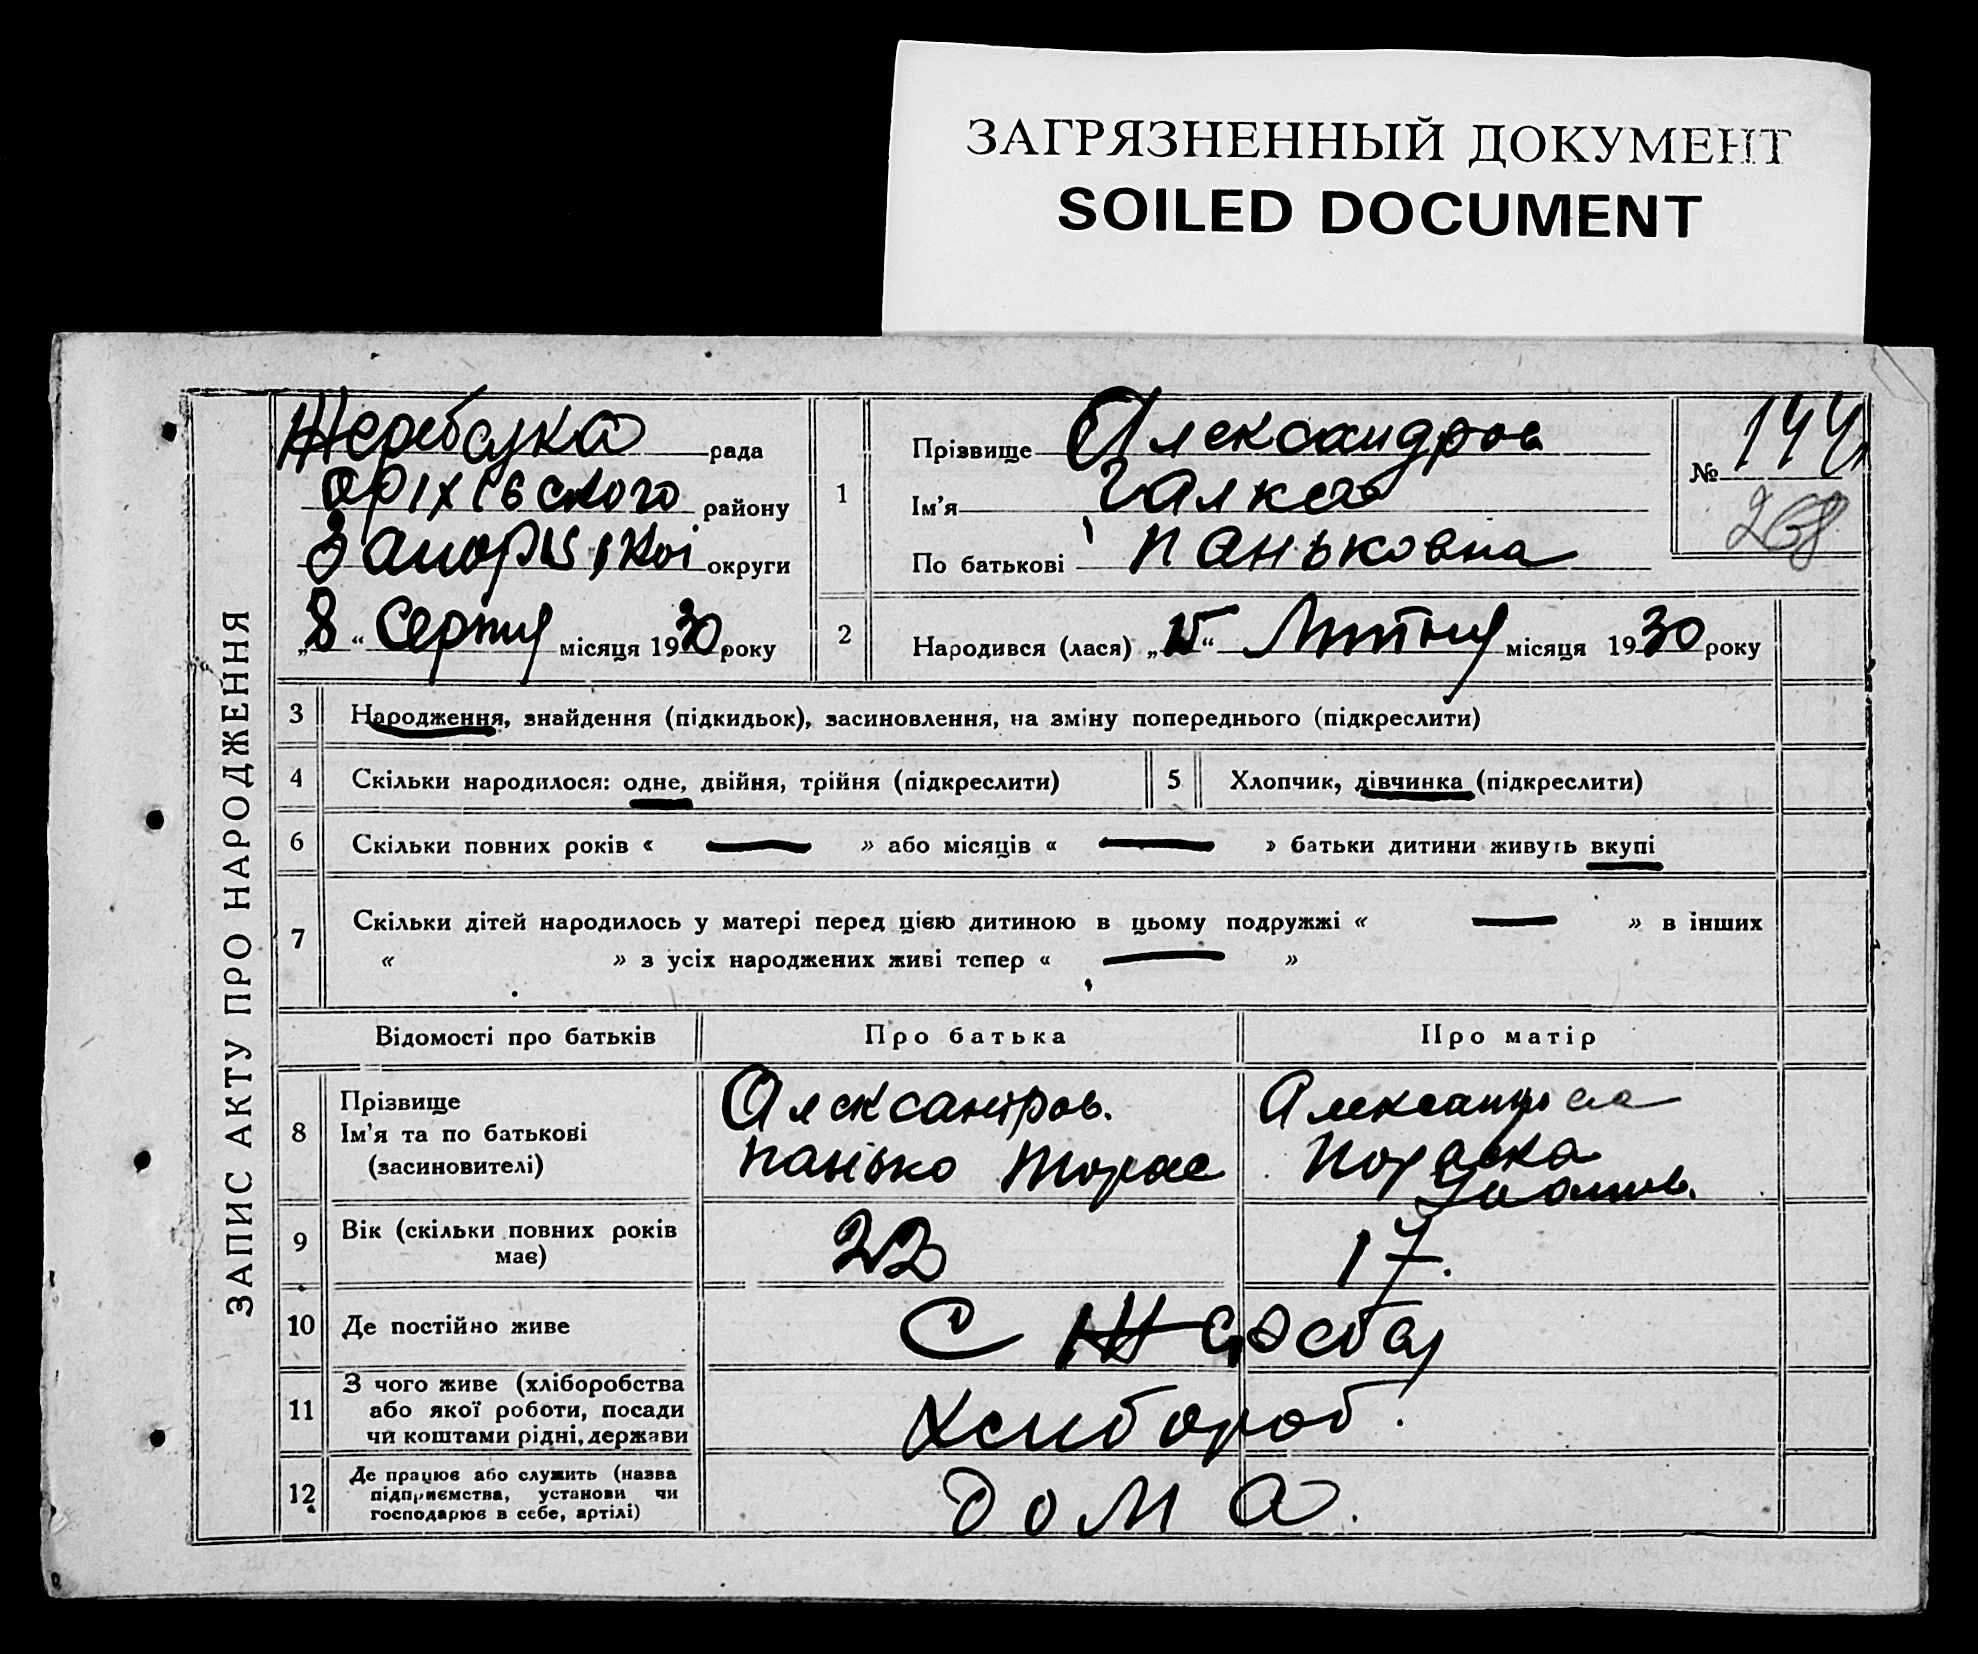 ЗАГРЯЗНЕННЫЙ ДОКУМЕНТ
SOILED DOCUMENT
ЗАПИС АКТУ ПРО НАРОДЖЕННЯ
рада
району
округи
„8“ Серпня місяця 1930 року
1
Прізвище Александров
Ім'я
По батькові Паньковна
№ 144
268
2 Народився (лася) „15“ місяця 1930 року
3 Народження, знайдення (підкидьок), засиновлення, на зміну попереднього (підкреслити)
4 Скільки народилося: одне, двійня, трійня (підкреслити)
5 Хлопчик, дівчинка (підкреслити)
6 Скільки повних років « — » або місяців « — » батьки дитини живуть вкупі
7 Скільки дітей народилось у матері перед цією дитиною в цьому подружжі « — » в інших
« » з усіх народжених живі тепер « — »
Відомості про батьків Про батька Про матір
8 Прізвище
Ім'я та по батькові
(засиновителі)
Александров.
Панько
9 Вік (скільки повних років
має)
22 17.
10 Де постійно живе
С
11 З чого живе (хліборобства
або якої роботи, посади
чи коштами рідні, держави
12 Де працює або служить (назва
підприємства, установи чи
господарює в себе, артілі)
дома.